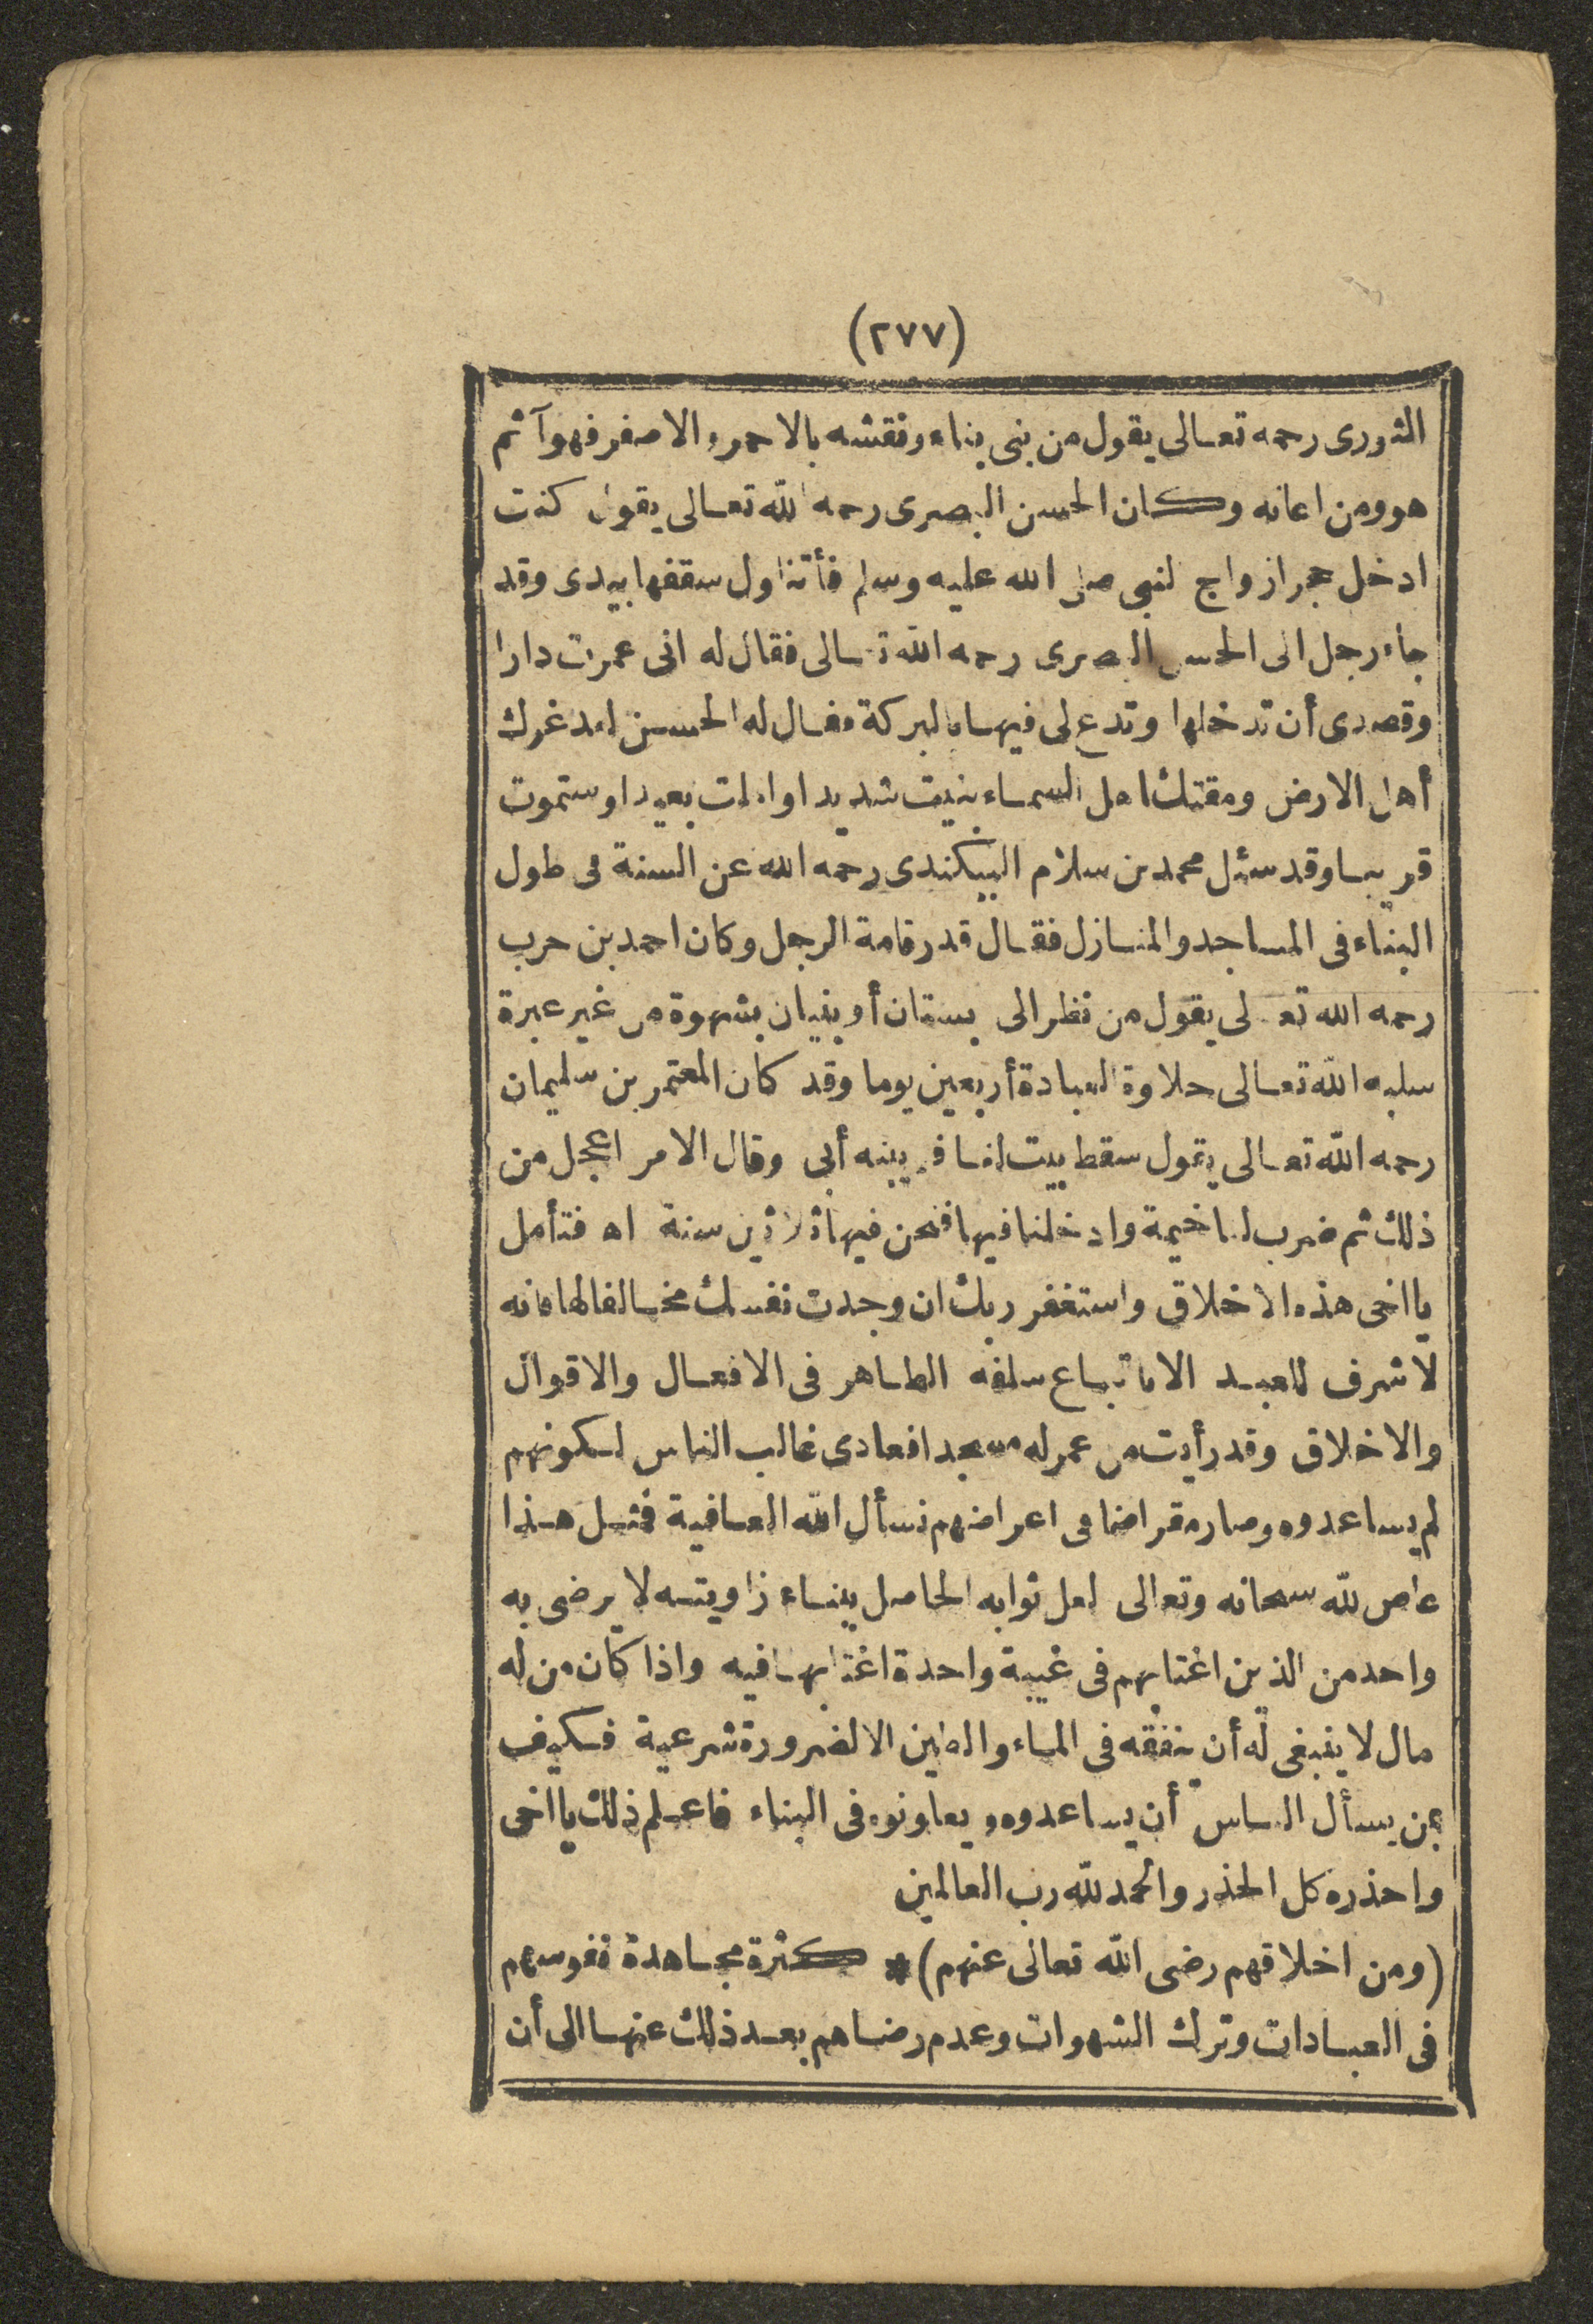 (٢٧٧)
الثورى رحمه تعالى يقول من بنى بناء ونقشه بالاحمر والاصفر فهو آثم
هو ومن اعانه وكان الحسن البصرى رحمه الله تعالى يقول كنت
ادخل حجر ازواج النبى صلى الله عليه وسلم فأتناول سقفها بيدى وقد
جاء رجل الى الحسن البصرى رحمه الله تعالى فقال له انى عمرت دارا
وقصدى أن تدخلها وتدع لى فيها بالبركة فقال له الحسن لقد غرك
أهل الارض ومقتك اهل السماء بنيت شديدا واملت بعيدا وستموت
قريبا وقد سئل محمد بن سلام البيكندى رحمه الله عن السنة فى طول
البناء فى المساجد والمنازل فقال قدر قامة الرجل وكان احمد بن حرب
رحمه الله تعالى يقول من نظر الى بستان أو بنيان بشهوة من غير عبرة
سلبه الله تعالى حلاوة العبادة أربعين يوما وقد كان المعتمر بن سليمان
رحمه الله تعالى يقول سقط بيت لنا فلم يبنه أبى وقال الامر اعجل من
ذلك ثم ضرب لنا خيمة وادخلنا فيها فنحن فيها ثلاثين سنة اه فتأمل
يا اخى هذه الاخلاق واستغفر ربك ان وجدت نفسك مخالفا لها فانه
لا شرف للعبد الا باتباع سلفه الطاهر فى الافعال والاقوال
والاخلاق وقد رأيت من عمر له مسجدا فعادى غالب الناس لكونهم
لم يساعدوه وصار مقراضا فى اعراضهم نسأل الله العافية فمثل هذا
عاص لله سبحانه وتعالى لعل ثوابه الحاصل ببناء زاويته لا يرضى به
واحد من الذين اغتابهم فى غيبة واحدة اغتابها فيه واذا كان من له
مال لا ينبغى له أن ينفقه فى الماء والطين الا لضرورة شرعية فكيف
بمن يسأل الناس أن يساعدوه ويعاونوه فى البناء فاعلم ذلك يا اخى
واحذره كل الحذر والحمد لله رب العالمين
(ومن اخلاقهم رضى الله تعالى عنهم) * كثرة مجاهدة نفوسهم
فى العبادات وترك الشهوات وعدم رضاهم بعد ذلك عنها الى أن